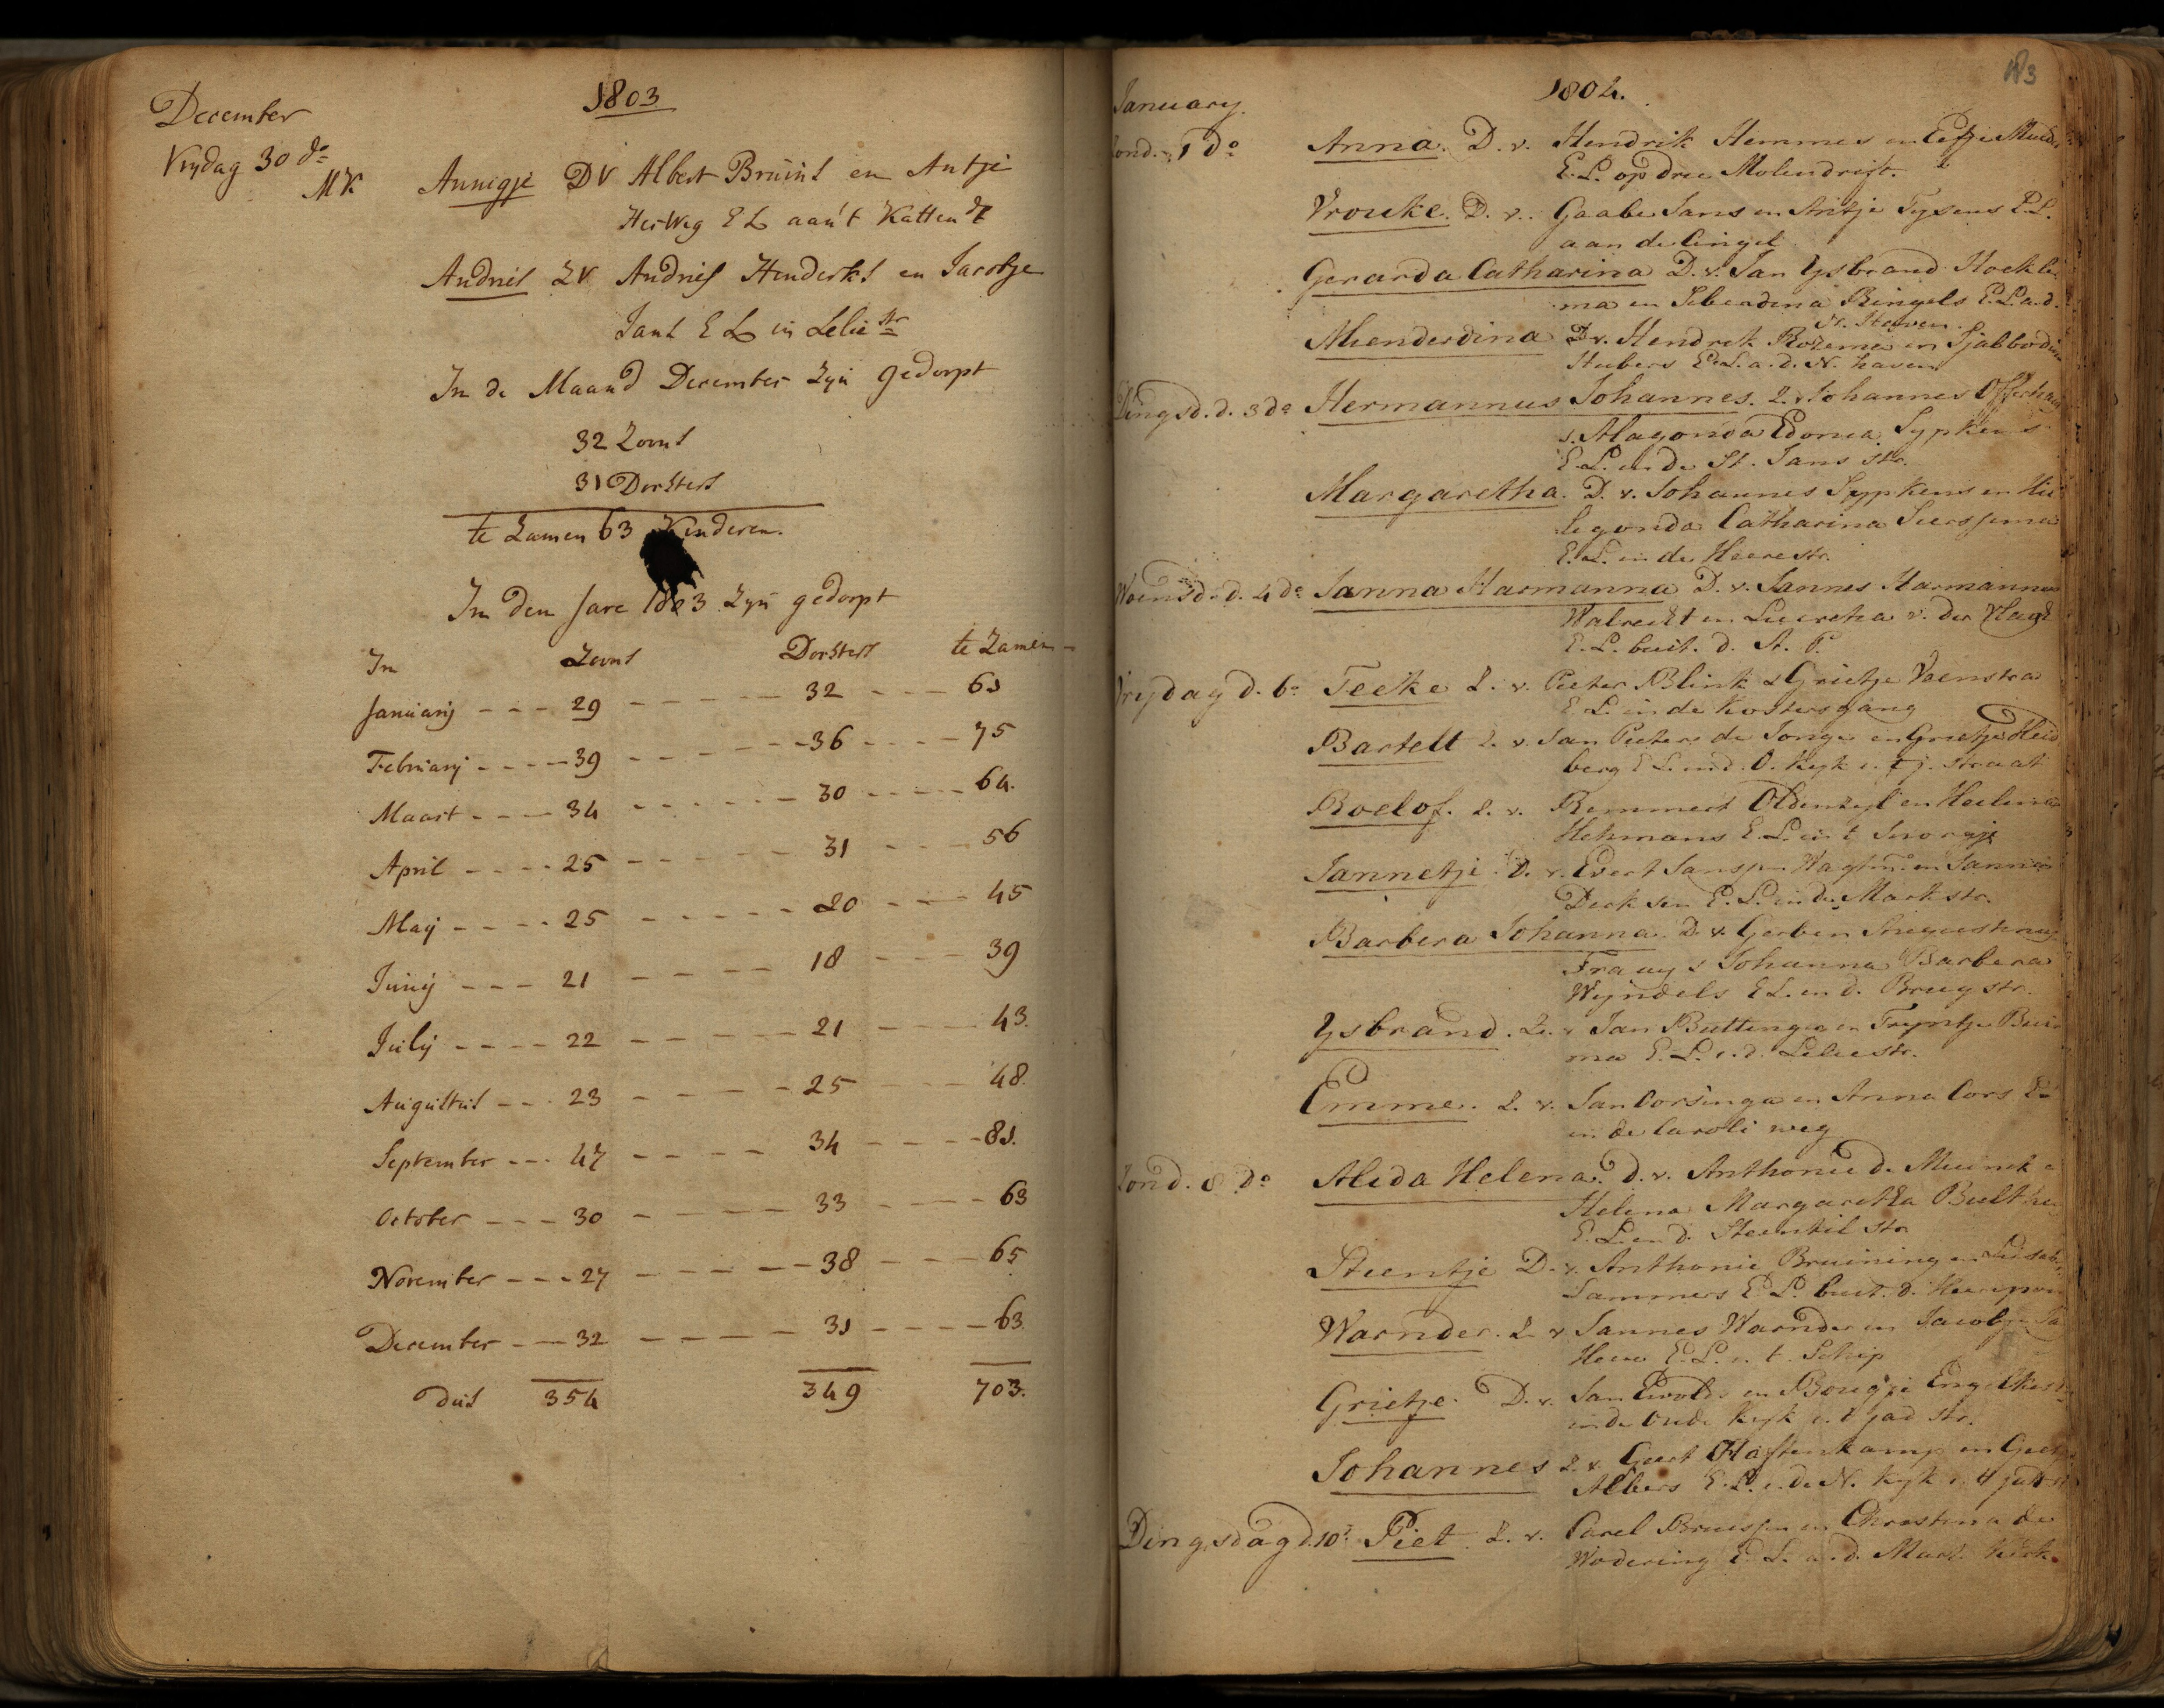 December
1803
Vrydag 30 do
MK Annigje DV Albert Bruins en Antje
Herweg E L aan't Katten
Andries ZV Andries Henderks en Jacobje
Jans E L in Lelie str
In de Maand December Zyn gedoopt
32 Zoons
31 Dochters
te Zamen 63 Kinderen.
In den Jare 1803 Zyn gedoopt
In Zoons Dochters te Zamen
Januarij 29 32 61
Februarij 39 36 75
Maart 34 30 64.
April 25 31 56
Maij 25 20 45
Junij 21 18 39
Julij 22 21 43.
Augustus 23 25 48.
September 47 34 81.
October 30 33 63
November 27 38 65
December 32 31 63
Dus 354 349 703.
January.
1804.
Zond. 1 do Anna. D. v. Hendrik Hemmes en
E. L. op drie Molendrift.
Vrouke. D. v. Gaabe Jans en Antje Tysens E. L.
aan de Cingel
Gerarda Catharina D. v. Jan Ysbrand Hoekse
ma en Siberdina Ringels E. L. a. d.
N. Haven.
Mienderdina D. v. Hendrik Rozema en
Huberts E. L. a. d. N. haven
Dingsd. d. 3 do Hermannus Johannes. Z. v. Johannes Offerhaus
Alagonda Edonia Sypkens
E. L. in de St. Jans str.
Margaretha. D. v. Johannes Sypkens en Hil
legonda Catharina Sierssema
E. L. in de Heerestr.
Woensd. d. 4 do Janna Harmanna D. v. Jannes Harmannus
Walrecht en Lucretia v. der Vlagt
E. L. buit. d. St. P.
Vrydag d. 6o Feeke Z. v. Pieter Blink & Grietje Veenstra
E. L. in de Kostersgang
Bartelt Z. v. Jan Pieters de Jonge en Grietje Heid
berg E. L. in d. O. Kyk i. t j. straat
Roelof. Z. v. Remmert Oldenzyl en Heilena
Hekmans E. L. in t
Jannetje. D. v. Evert Jansen en Janna
Derksen E. L. in de Markstr.
Barbera Johanna. D. v. Gerben Augustinus
& Johanna Barbera
Wyndels E L. in d. Brugstr.
Ysbrand. Z. v. Jan Buttinga en Tryntje
ma E. L. i. d. Leliestr.
Emme. Z. v. Jan Corsinga en Anna Cors E L
in de Caroli weg
Zond. 8 do Alida Helena. D. v. Anthonie d. Muinck
Helena Margaretha Bulthuis
E. L. in d. Steentil str
Stientje D. v. Anthonie Bruining en
Lammers E. L. buit. d. Heerepoort
Warnder. Z. v. Jannes Warnder en Jacobje
E. L. i. t. Schip
Grietje. D. v. Jan Ewolds en Bougje Engelkes
in de Oude Kyk i. t jad str.
Johannes Z. v. Geert Haftenkamp en
Albers E. L. i. de N. Kyk i. 't jatt st
Dingsdag d. 10o Piet. Z. v. Carel en Christina de
Wodering E. L. a. d. Mart. Kerk.